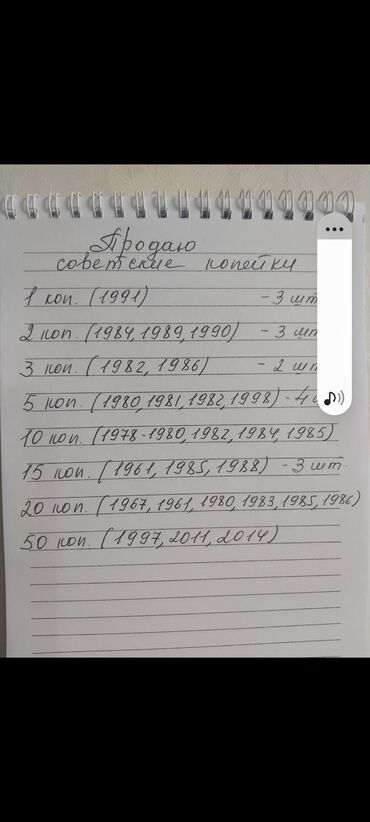 Продаю
советские копейки
1 коп. (1991) - 3 шт
2 коп. (1984, 1989, 1990) - 3 шт
3 коп. (1982, 1986) - 2 шт
5 коп. (1980, 1981, 1982, 1998) - 4
10 коп. (1978-1980, 1982, 1984, 1985)
15 коп. (1961, 1985, 1988) - 3 шт.
20 коп. (1967, 1961, 1980, 1983, 1985, 1986)
50 коп. (1997, 2011, 2014)